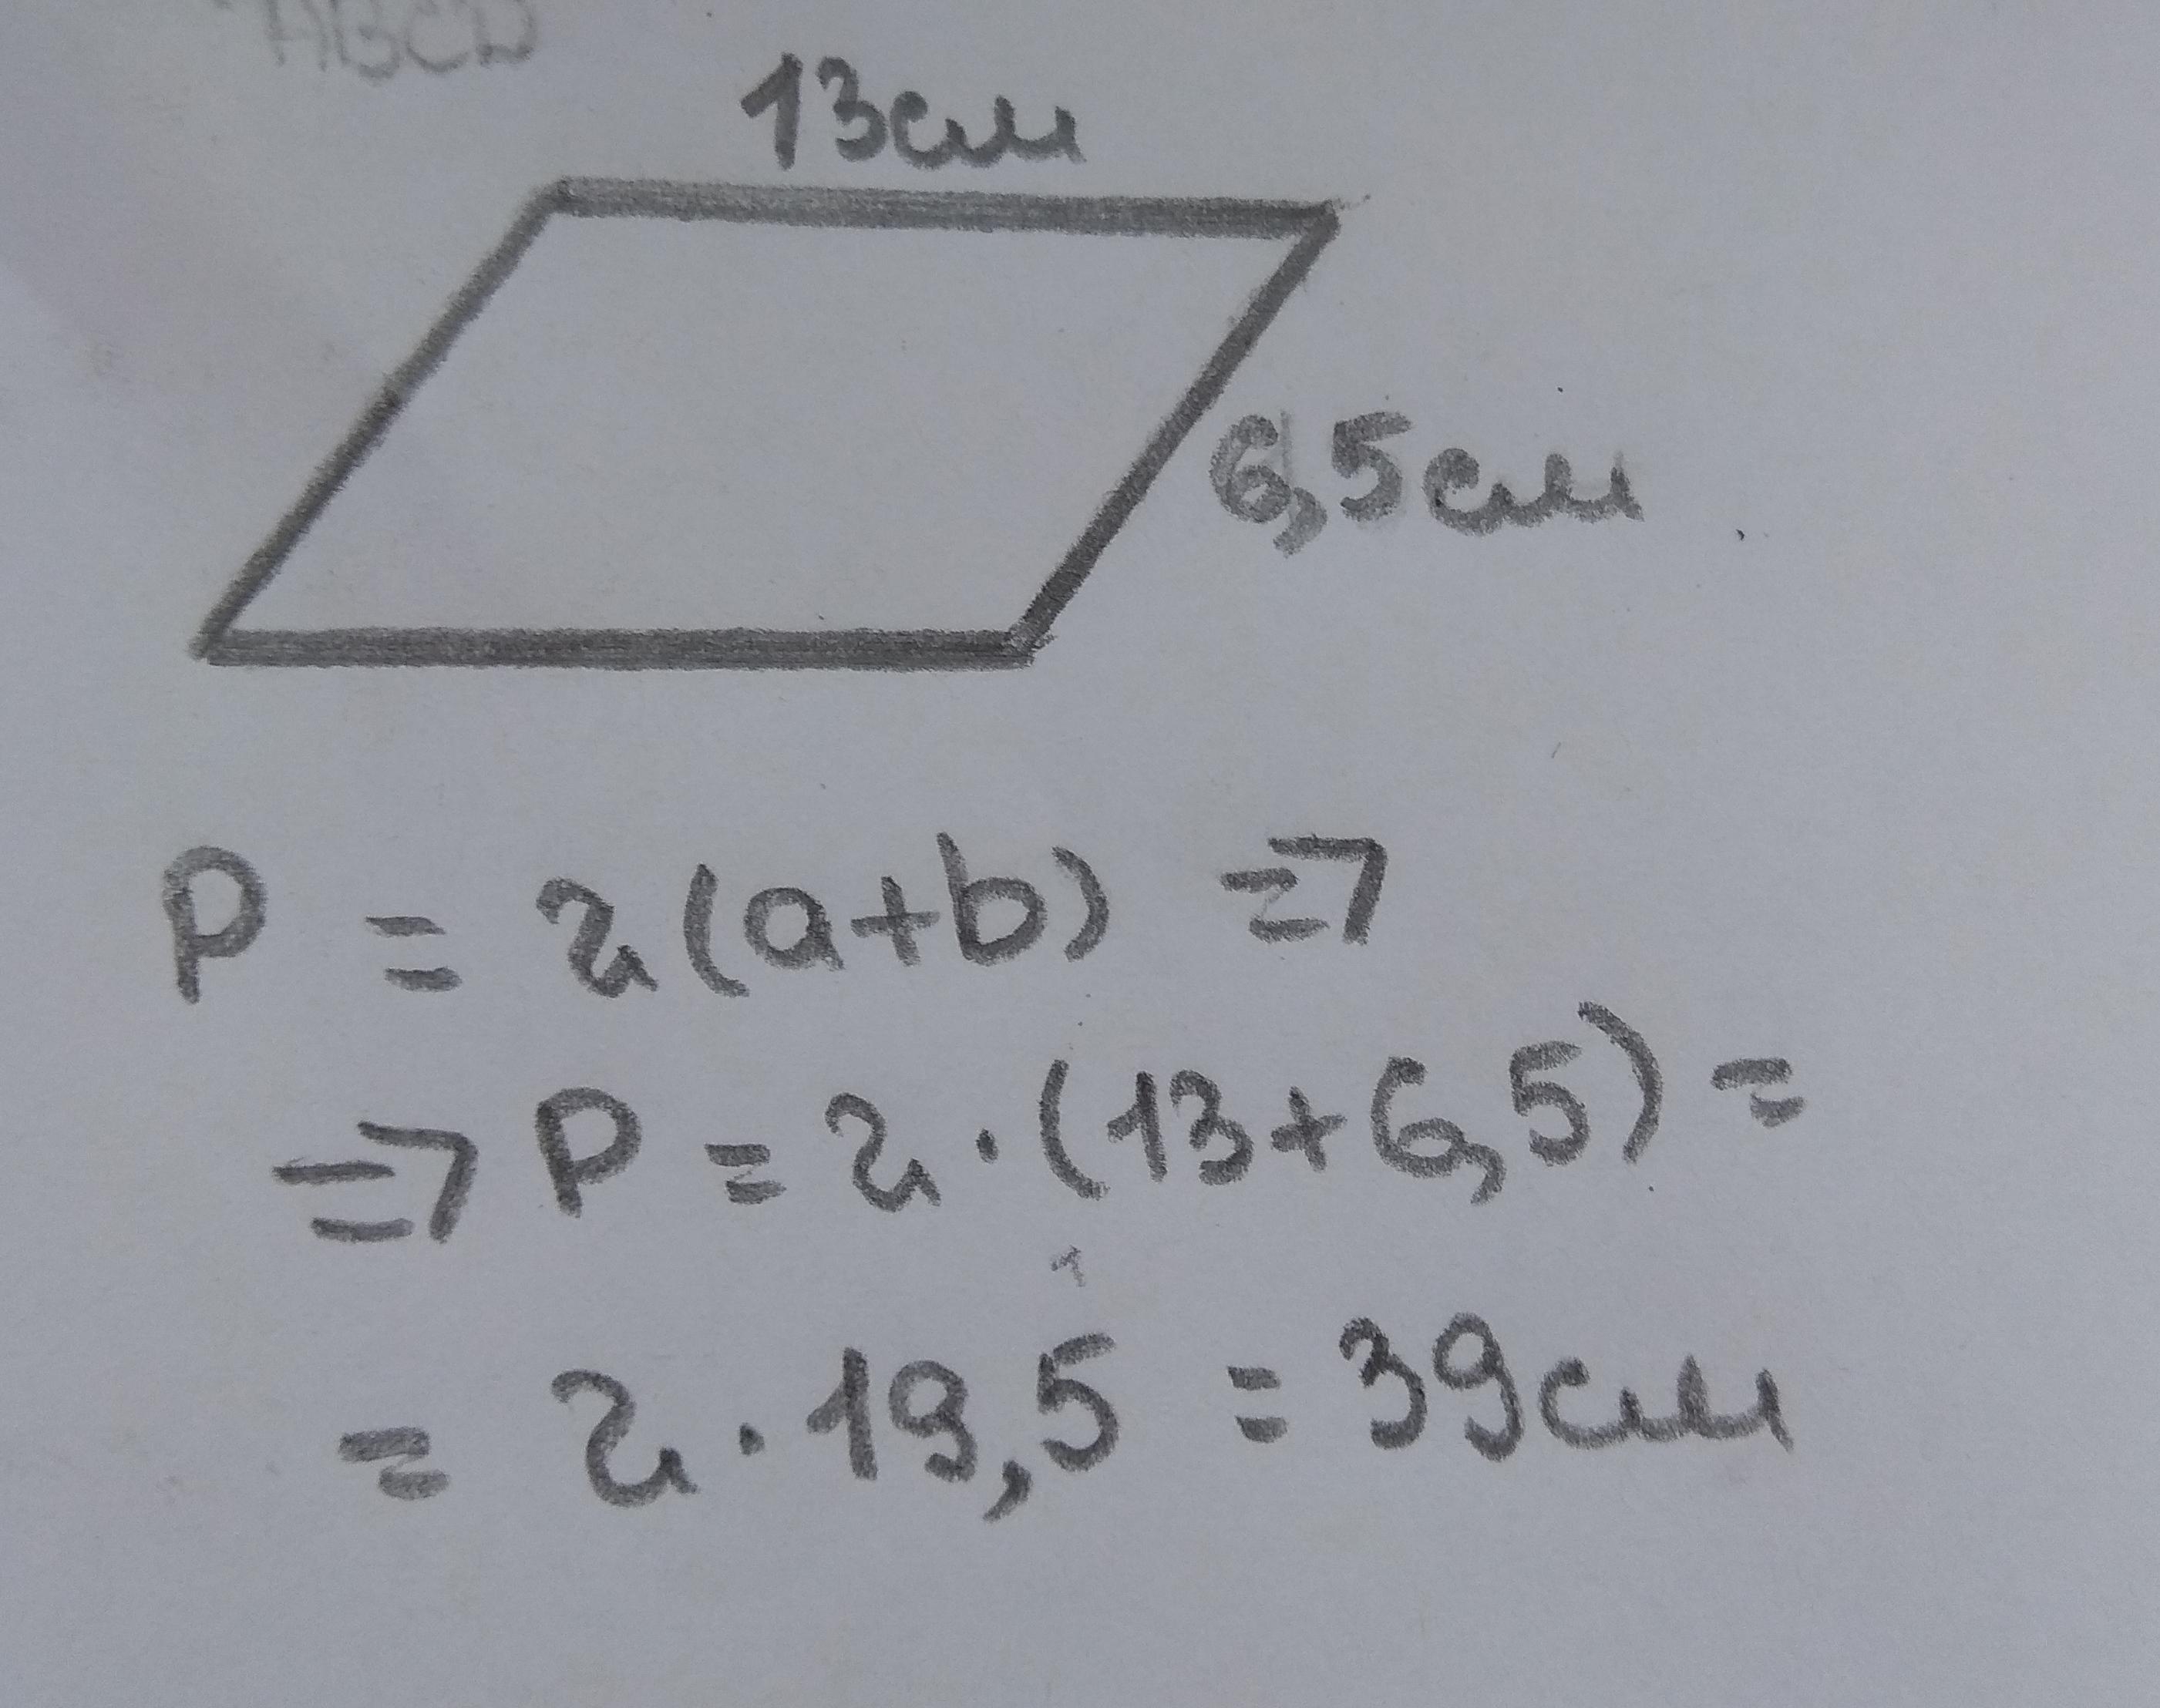 ABCD
13см
6,5см
P = 2(a+b) =>
=> P = 2·(13+6,5) =
1
= 2·19,5 = 39см